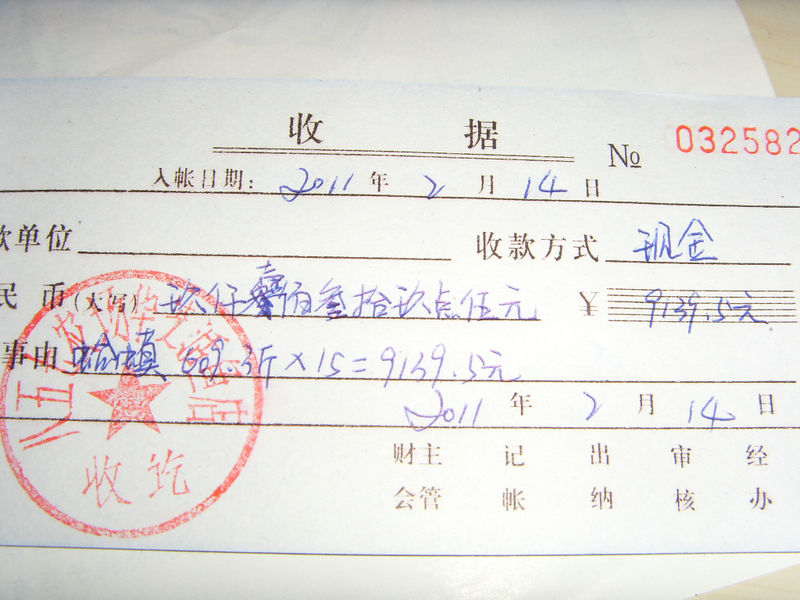 收 据
№ 032582
入帐日期: 2011 年 2 月 14 日
款单位 收款方式 现金
民 币(大写) 玖仟壹佰叁拾玖点伍元 ¥ 9139.5元
事由 蛤蟆 609.3斤×15=9139.5元
2011 年 2 月 14 日
财主 记 出 审 经
会管 帐 纳 核 办
收讫